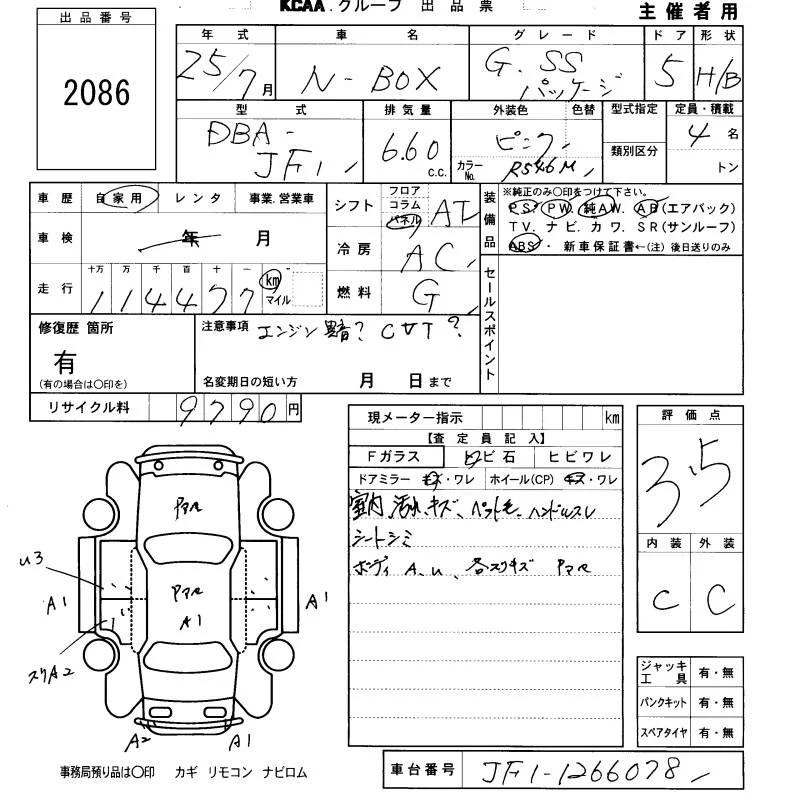 KCAA.グループ 出品票
主催者用
出品番号
2086
年式 車名 グレード ドア 形状
25/7月 N-BOX G.SSパッケージ 5 H/B
型式 排気量 外装色 色替 型式指定 定員・積載
DBA-JF1 6.60 c.c. ピンク 4名
カラーNo. R546M 類別区分 トン
車歴 自家用 レンタ 事業.営業車
シフト フロア コラム パネル AT
車検 年 月
冷房 AC
走行 十万 万 千 百 十 一
114477 km マイル
燃料 G
装備品 ※純正のみ○印をつけて下さい。
PS. PW. 純AW. AB(エアバック)
TV. ナビ. カワ. SR(サンルーフ)
ABS・ 新車保証書←(注)後日送りのみ
セールスポイント
修復歴 箇所
有
(有の場合は○印を)
注意事項 エンジン異音? CVT?
名変期日の短い方 月 日まで
リサイクル料 9790円
現メーター指示 km
【査定員記入】
Fガラス ヒビ石 ヒビワレ
ドアミラー キズ・ワレ ホイール(CP) キズ・ワレ
室内汚れ、キズ、ペット毛、ハンドルスレ
シートシミ
ボディ A、U、各スリキズ
評価点
3.5
内装 外装
C C
U3
A1
A1
A1
スリA2
A2
A1
ジャッキ工具 有・無
パンクキット 有・無
スペアタイヤ 有・無
事務局預り品は○印 カギ リモコン ナビロム
車台番号 JF1-1266078